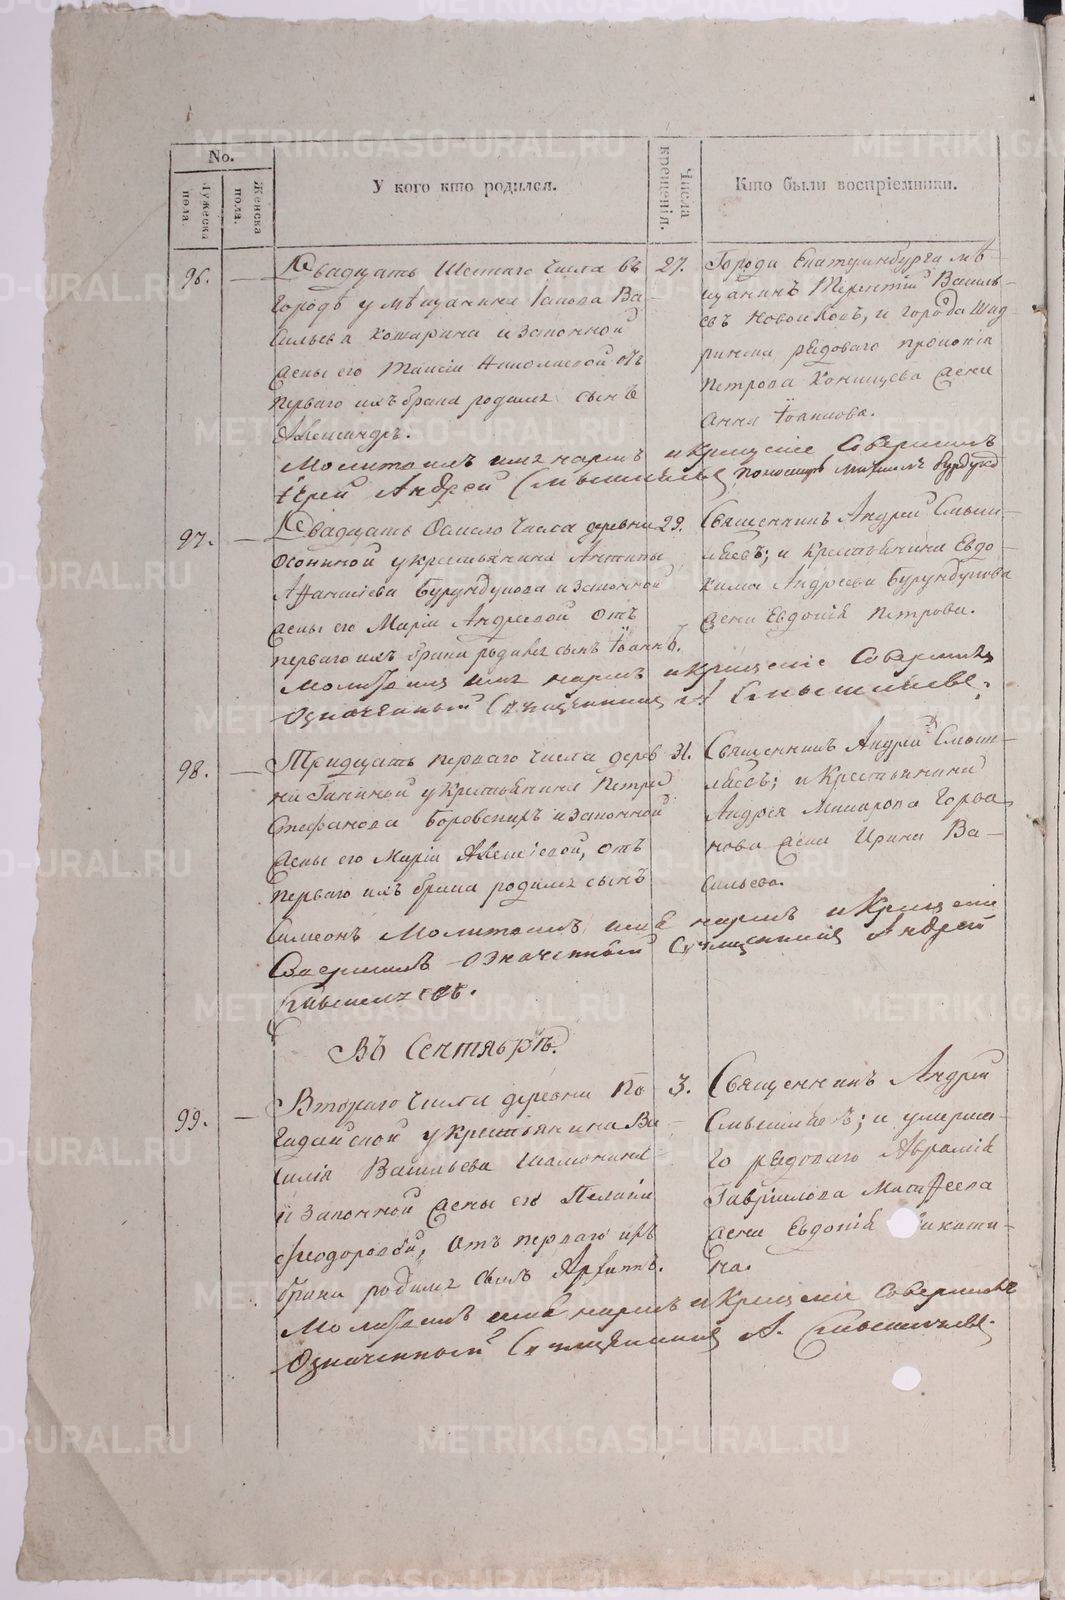 No.
Мужеска пола.
Женска пола.
У кого кто родился.
Числа крещенія.
Кто были воспріемники.
96. — Двадцать Шестаго Числа въ
Городѣ у мѣщанина Іакова Ва-
сильева Комарина и законной
жены его Таисіи Николаевой отъ
перваго ихъ брака родился сынъ
Александръ.
27. Города Екатеринбурга мѣ-
щанинъ Терентій Василь-
евъ Новоселовъ, и города Шад-
ринска рядоваго Прокопія
Петрова Конищева жена
Анна Іоаннова.
Молитвилъ имя нарекъ и Крещеніе Совершилъ
Іерей Андрей Смышляевъ
97. — Двадцать Осмаго Числа деревни
Осониной у крестьянина Антипы
Афанасіева Бурундукова и законной
жены его Маріи Андреевой отъ
перваго ихъ брака родился сынъ Іоаннъ.
29. Священникъ Андрей Смыш-
ляевъ; и Крестьянина Евдо-
кима Андреева Бурундукова
жена Евдокія Петрова.
Молитвилъ имя нарекъ и Крещеніе Совершилъ
Означенный Священникъ А. Смышляевъ.
98. — Тридцать перваго числа дерев-
ни Ганиной у Крестьянина Петра
Стефанова Боровскихъ и законной
жены его Маріи Алексіевой, отъ
перваго ихъ брака родился сынъ
Симеонъ
31. Священникъ Андрей Смыш-
ляевъ; и Крестьянина
Андрея Макарова Горба-
нова жена Ирина Ва-
сильева.
Молитвилъ имя нарекъ и Крещеніе
Совершилъ означенный Священникъ Андрей
Смышляевъ.
Въ Сентябрѣ.
99. — Втораго Числа деревни По-
гадайской у Крестьянина Ва-
силія Васильева Шамонина
и законной жены его Пелагіи
Феодоровой, отъ перваго ихъ
брака родился сынъ
3. Священникъ Андрей
Смышляевъ; и умерша-
го рядоваго Аврамія
Гавриилова Матфеева
жена Евдокія Никити-
на.
Молитвилъ имя нарекъ и Крещеніе Совершилъ
Означенный Священникъ А. Смышляевъ.
METRIKI.GASO-URAL.RU